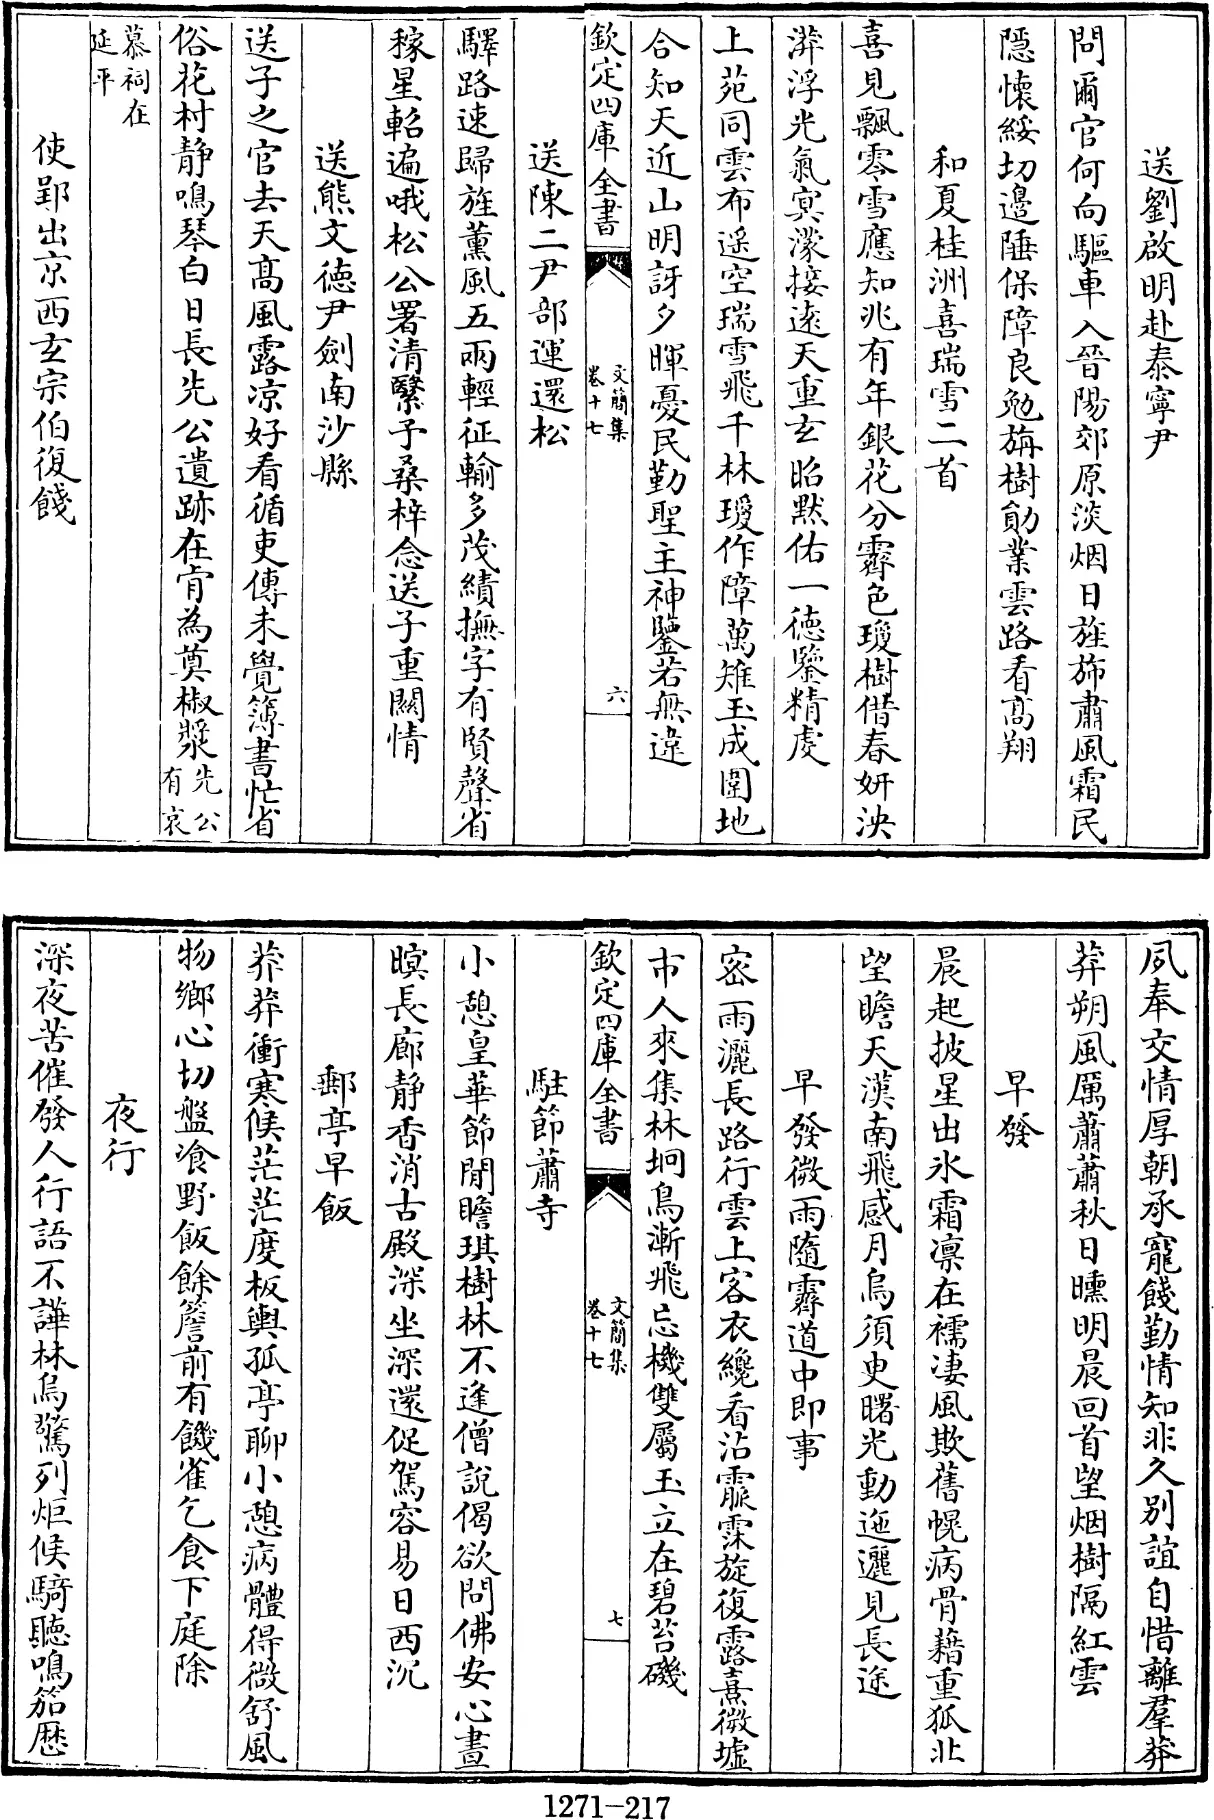 送劉啟明赴泰寧尹
問爾官何向驅車入晉陽郊原淡烟日旌斾肅風霜民
隱懷綏切邊陲保障良勉旃樹勛業雲路看髙翔
和夏桂洲喜瑞雪二首
喜見飄零雪應知兆有年銀花分霽色瓊樹借春妍泱
漭浮光氣冥濛接逺天重玄昭黙佑一徳鑒精虔
上苑同雲布遥空瑞雪飛千林瓊作障萬雉玉成圍地
合知天近山明訝夕暉憂民勤聖主神鑒若無違
欽定四庫全書
文簡集
卷十七
六
送陳二尹部運還松
驛路速歸旌薰風五兩輕征輸多茂績撫字有賢聲省
稼星軺遍哦松公署清繄予桑梓念送子重闗情
送熊文徳尹劍南沙縣
送子之官去天髙風露凉好看循吏傳未覺簿書忙省
俗花村静鳴琴白日長先公遺跡在肯為奠椒漿先公
有哀
慕祠在
延平
使郢出京西玄宗伯復餞
夙奉交情厚朝承寵餞勤情知非久别誼自惜離羣莽
莽朔風厲蕭蕭秋日曛明晨回首望烟樹隔紅雲
早發
晨起披星出氷霜凛在襦凄風欺舊幌病骨藉重狐北
望瞻天漢南飛感月烏須臾曙光動迤邐見長途
早發微雨隨霽道中即事
宻雨灑長路行雲上客衣纔看沾霢霂旋復露熹微墟
市人來集林坰鳥漸飛忘機雙屬玉立在碧苔磯
欽定四庫全書
文簡集
卷十七
七
駐節蕭寺
小憩皇華節閒瞻琪樹林不逢僧說偈欲問佛安心晝
暝長廊静香消古殿深坐深還促駕容易日西沉
郵亭早飯
莽莽衝寒候茫茫度板輿孤亭聊小憩病體得微舒風
物鄉心切盤飡野飯餘簷前有饑雀乞食下庭除
夜行
深夜苦催發人行語不譁林烏驚列炬候騎聽鳴笳歴
1271-217